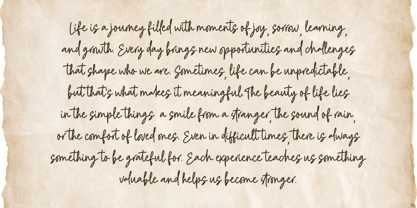 Life is a journey filled with moments of joy, sorrow, learning,
and growth. Every day brings new opportunities and challenges
that shape who we are. Sometimes, life can be unpredictable,
but that's what makes it meaningful. The beauty of life lies
in the simple things a smile from a stranger, the sound of rain,
or the comfort of loved ones. Even in difficult times, there is always
something to be grateful for. Each experience teaches us something
valuable and helps us become stronger.